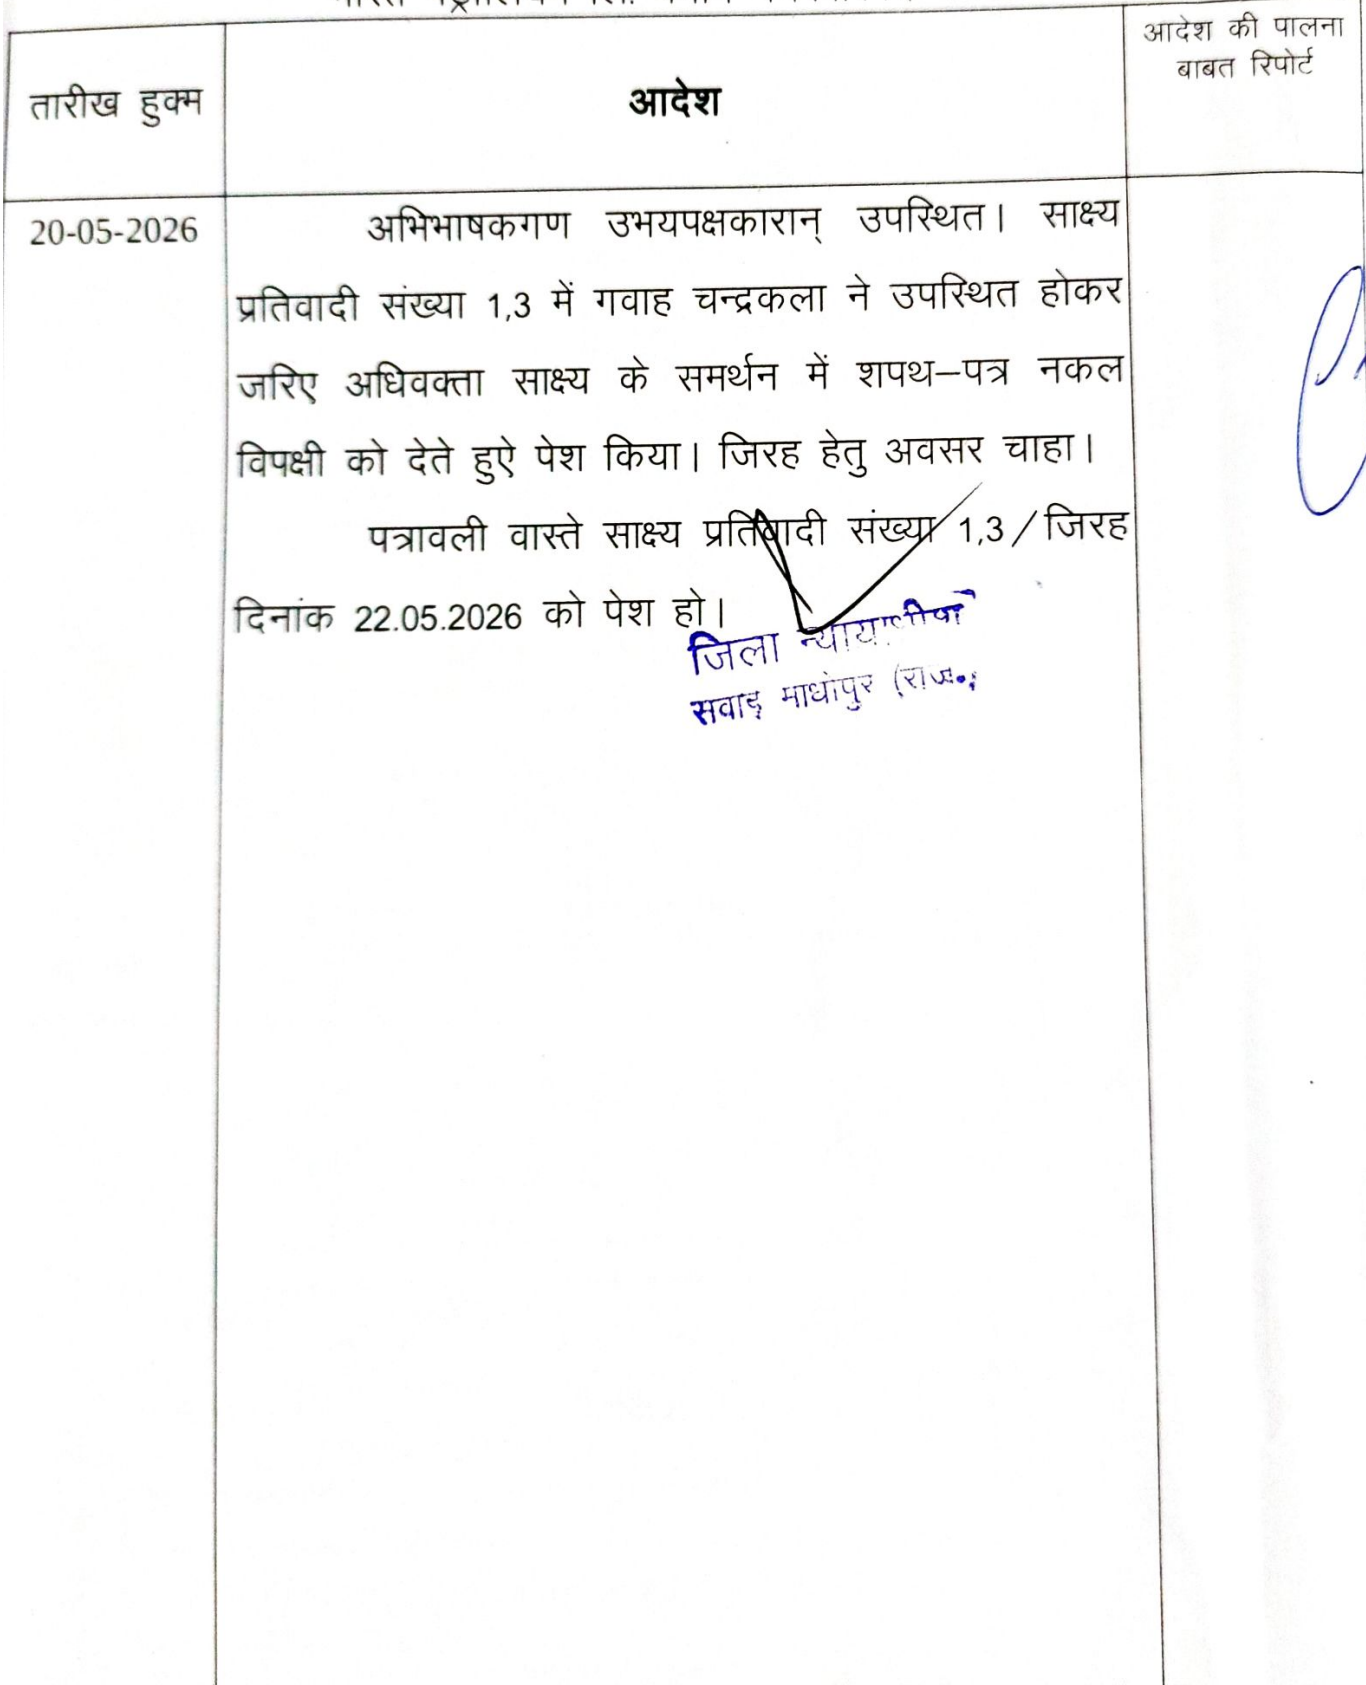 आदेश की पालना
बाबत रिपोर्ट
तारीख हुक्म
आदेश
20-05-2026
अभिभाषकगण उभयपक्षकारान् उपस्थित। साक्ष्य
प्रतिवादी संख्या 1,3 में गवाह चन्द्रकला ने उपस्थित होकर
जरिए अधिवक्ता साक्ष्य के समर्थन में शपथ–पत्र नकल
विपक्षी को देते हुऐ पेश किया। जिरह हेतु अवसर चाहा।
पत्रावली वास्ते साक्ष्य प्रतिवादी संख्या 1,3/जिरह
दिनांक 22.05.2026 को पेश हो।
जिला
सवाई माधोपुर (राज.)